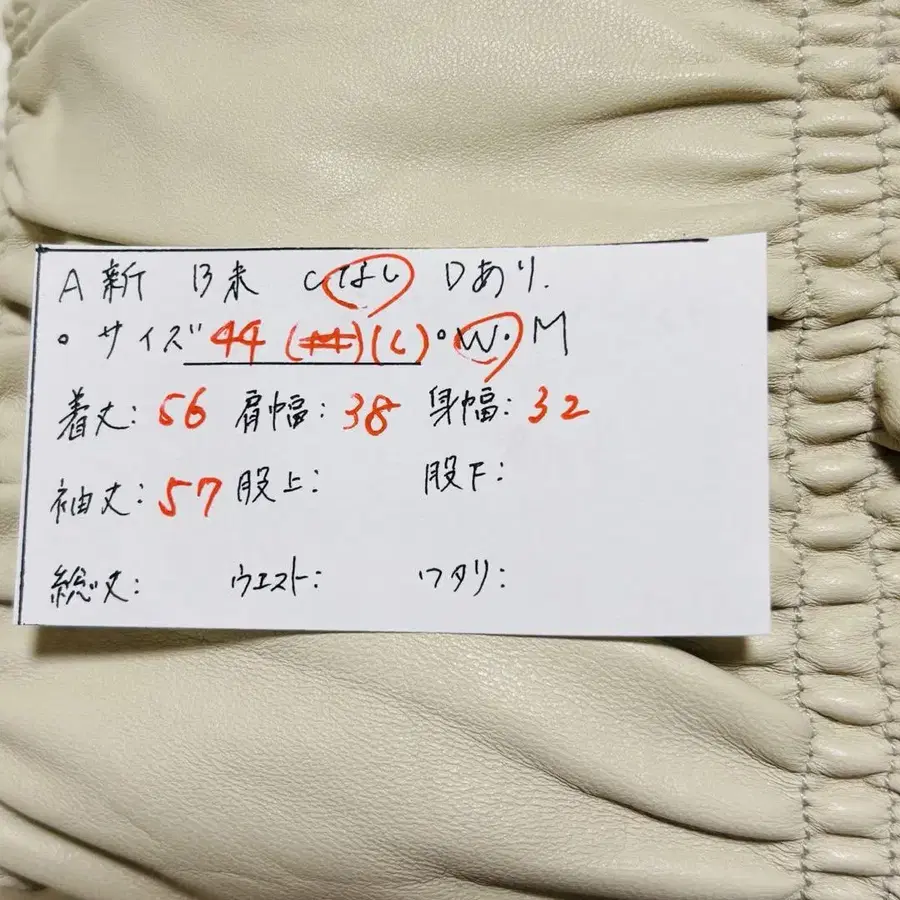 A 新 B 未 C なし D あり.
・サイズ 44 (M)(L)・W・M
着丈: 56 肩幅: 38 身幅: 32
袖丈: 57 股上: 股下:
総丈: ウエスト: ワタリ: